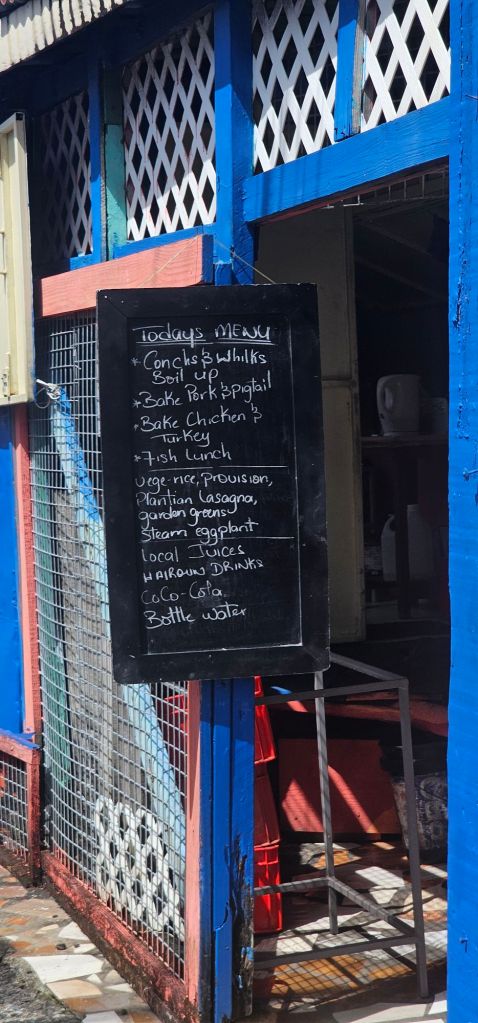 Todays MENU
*Conchs & Whilks
Boil up
*Bake Pork & Pigtail
*Bake Chicken &
Turkey
*Fish Lunch
Vege-rice, Provision,
Plantian Lasagna,
garden greens
Steam eggplant
Local Juices
HAIROUN DRINKS
CoCo-Cola
Bottle water